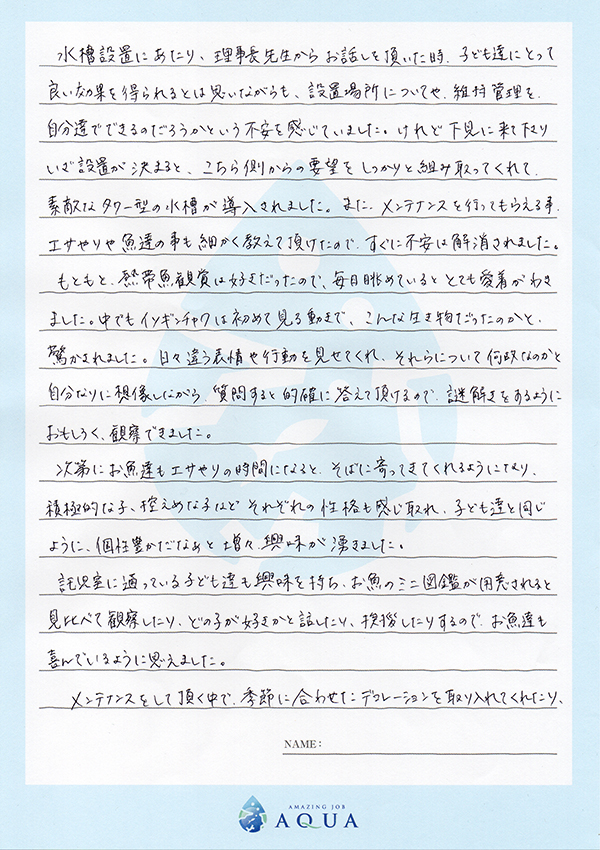 水槽設置にあたり、理事長先生からお話しを頂いた時、子ども達にとって
良い効果を得られるとは思いながらも、設置場所についてや、維持管理を、
自分達でできるのだろうかという不安を感じていました。けれど下見に来て下さり
いざ設置が決まると、こちら側からの要望をしっかりと組み取ってくれて、
素敵なタワー型の水槽が導入されました。また、メンテナンスを行ってもらえる事、
エサやりや魚達の事も細かく教えて頂けたので、すぐに不安は解消されました。
もともと、熱帯魚観賞は好きだったので、毎日眺めているととても愛着がわき
ました。中でもイソギンチャクは初めて見る動きで、こんな生き物だったのかと、
驚かされました。日々違う表情や行動を見せてくれ、それらについて何故なのかと
自分なりに想像しながら、質問すると的確に答えて頂けるので、謎解きをするように
おもしろく、観察できました。
次第にお魚達もエサやりの時間になると、そばに寄ってきてくれるようになり、
積極的な子、控えめな子など それぞれの性格も感じ取れ、子ども達と同じ
ように、個性豊かだなぁと増々、興味が湧きました。
託児室に通っている子ども達も興味を持ち、お魚のミニ図鑑が用意されると
見比べて観察したり、どの子が好きかと話したり、挨拶したりするので、お魚達も
喜んでいるように思えました。
メンテナンスをして頂く中で、季節に合わせたデコレーションを取り入れてくれたり、
NAME:
AMAZING JOB
AQUA